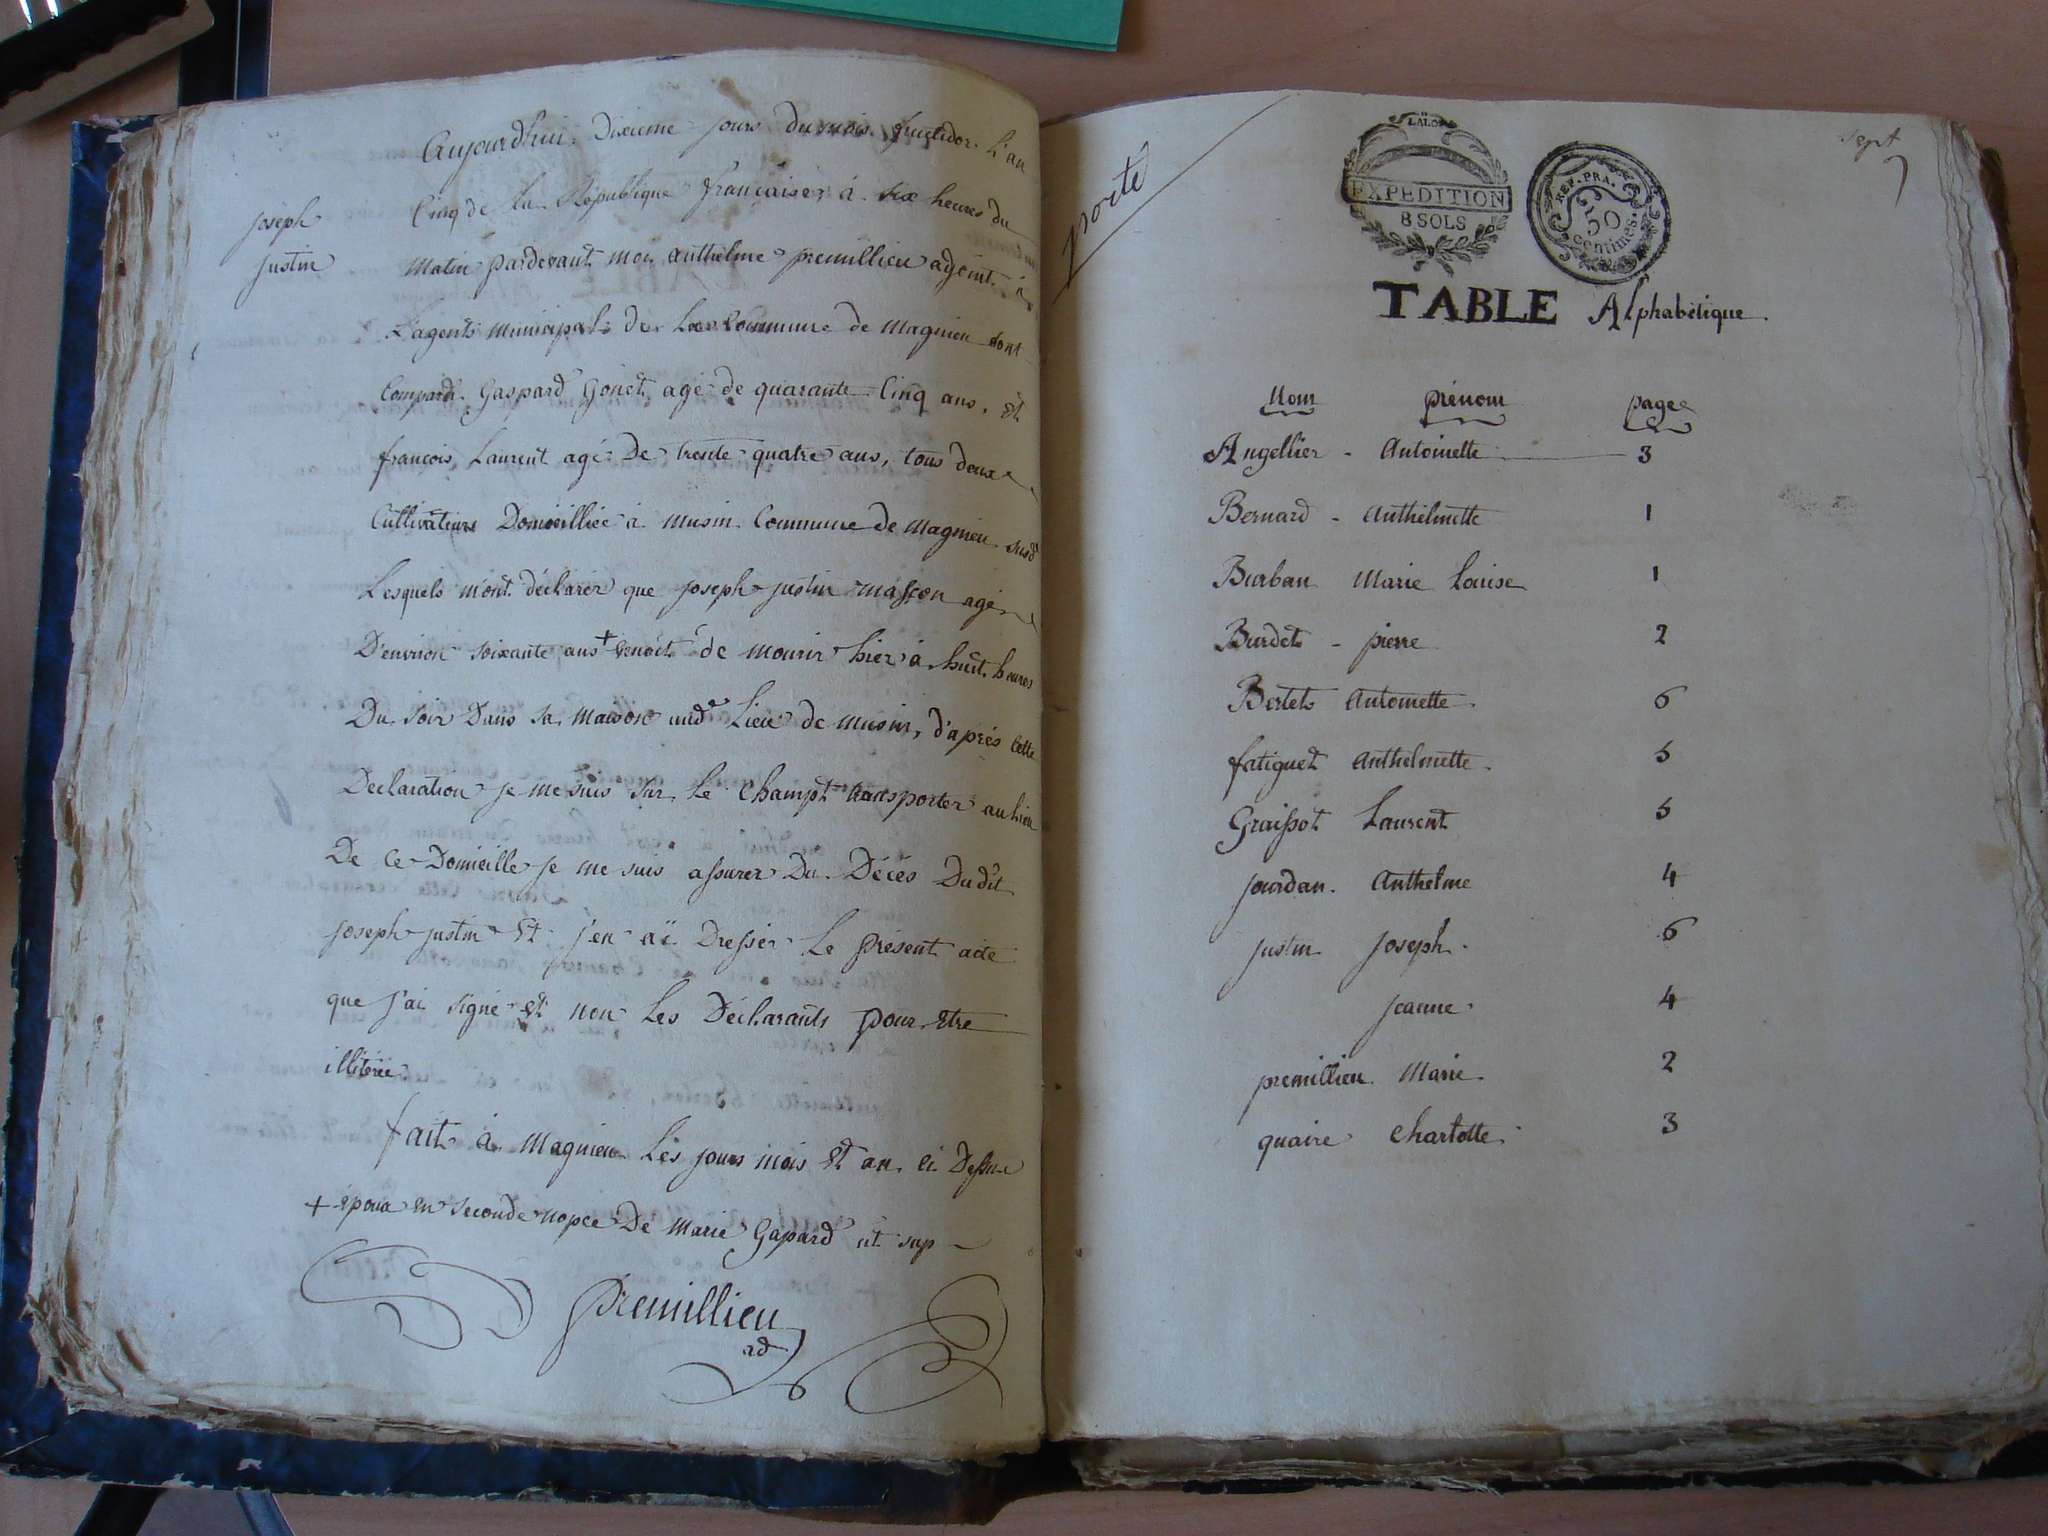 Aujourdhui Dixieme jours du mois fructidor L'an
Cinq de La République française, à six heures du
joseph
justin
Matin pardevant moi anthelme premillieu adjoint à
L'agent municipal de La Commune de Magnieu sont
Comparu Gaspard Gonet agé de quarante Cinq ans, Et
françois Laurent agé De trente quatre ans, tous deux
Cultivateurs Domicilliée à musin Commune de Magnieu susd
Lesquels m'ont déclarer que joseph justin masson agé
D'environ soixante ans + venoit de mourir hier à huit heures
Du soir Dans sa maison aud Lieu de musin, d'après cette
Déclaration je me suis sur Le Champt transporter au Lieu
De ce Domicille je me suis assurer Du Décès Dudit
joseph justin Et j'en aï Dresser Le présent acte
que j'ai signé et non Les Déclarants pour Etre
illiterée
fait à Magnieu Les jours mois Et an ci Dessus
+ epoux en seconde nopce De Marie Gapard ut sup
premillieu
ad
porté
LALO
EXPEDITION
8 SOLS
REP. FRA.
50
centimes.
sept
7
TABLE Alphabétique.
Nom prénom pages
Angellier - Antoinette 3
Bernard - Anthelmette 1
Burban Marie Louise 1
Burdet - pierre 2
Bertet Antoinette 6
fatiguet Anthelmette 5
Graissot Laurent 5
jourdan. Anthelme 4
justin joseph. 6
jeanne 4
premillieu Marie 2
quaire Charlotte 3